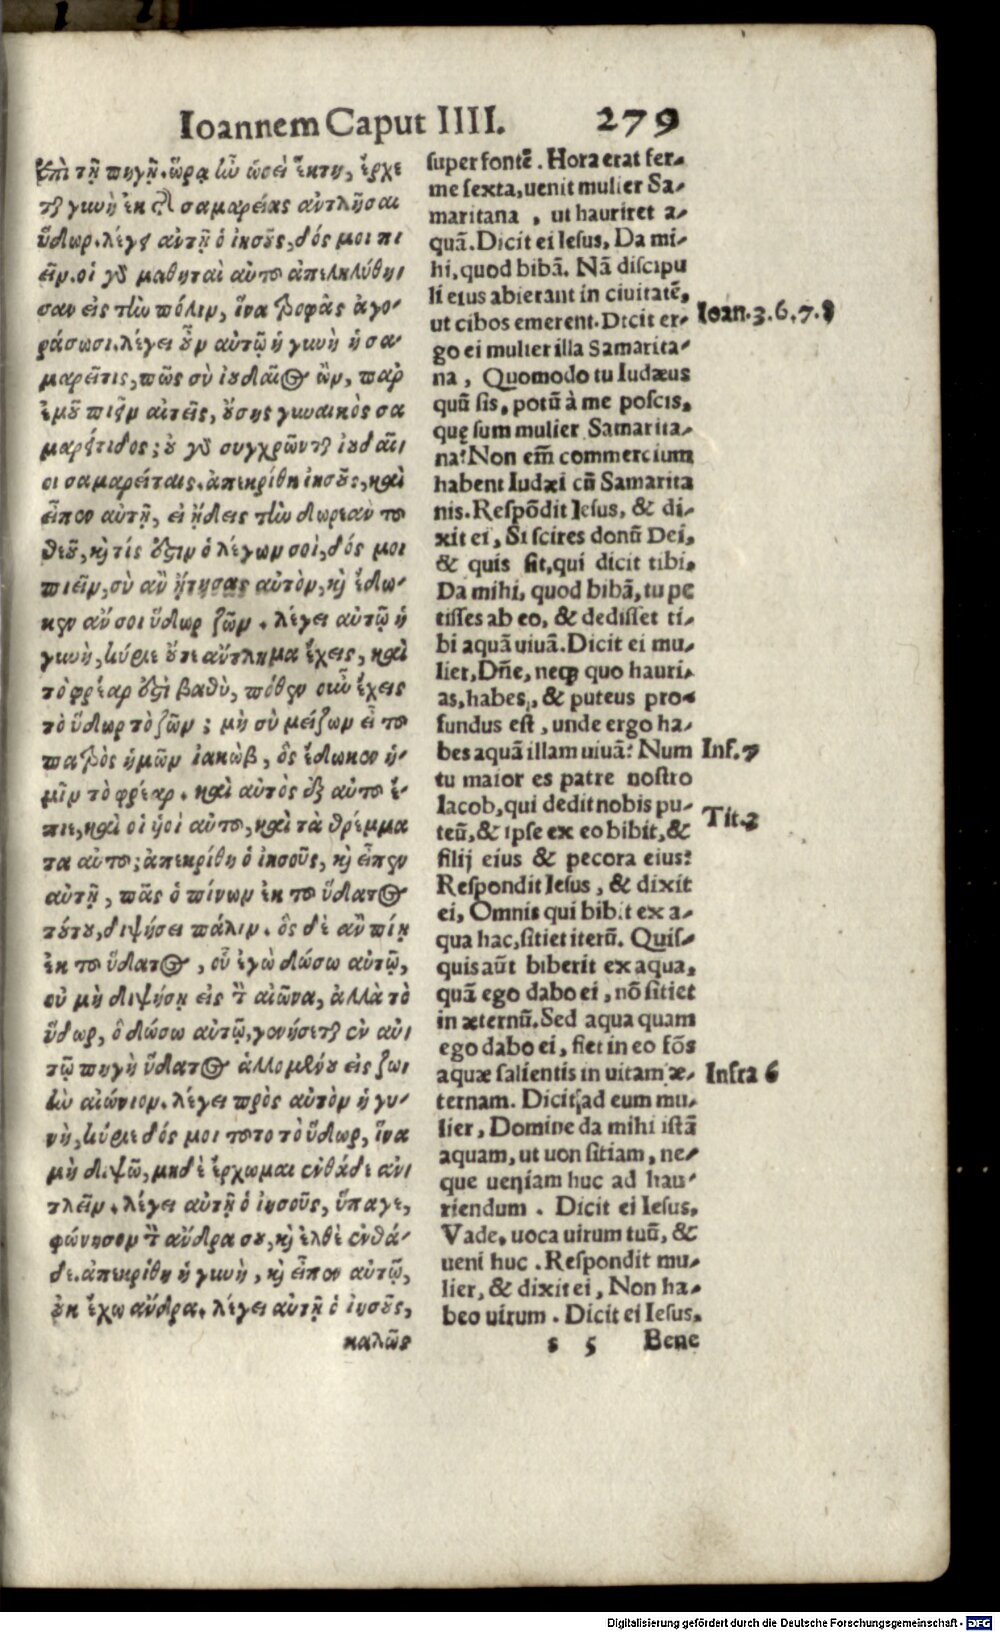 Ioannem Caput IIII. 279
ἐπὶ τῇ πηγῇ. ὥρα ἦν ὡσεὶ ἕκτη, ἔρχε
ται γυνὴ ἐκ τῆς σαμαρείας ἀντλῆσαι
ὕδωρ. λέγει αὐτῇ ὁ ἰησοῦς, δός μοι πι
εῖν. οἱ γὰρ μαθηταὶ αὐτοῦ ἀπεληλύθει
σαν εἰς τὴν πόλιν, ἵνα τροφὰς ἀγο-
ράσωσι. λέγει οὖν αὐτῷ ἡ γυνὴ ἡ σα-
μαρεῖτις, πῶς σὺ ἰουδαῖος ὢν, παρ
ἐμοῦ πιεῖν αἰτεῖς, οὔσης γυναικὸς σα
μαρείτιδος; οὐ γὰρ συγχρῶνται ἰουδαῖ
οι σαμαρείταις. ἀπεκρίθη ἰησοῦς, καὶ
εἶπεν αὐτῇ, εἰ ᾔδεις τὴν δωρεὰν τοῦ
θεοῦ, καὶ τίς ἐστιν ὁ λέγων σοὶ, δός μοι
πιεῖν, σὺ ἂν ᾔτησας αὐτὸν, καὶ ἔδω-
κεν ἄν σοι ὕδωρ ζῶν. λέγει αὐτῷ ἡ
γυνὴ, κύριε οὔτε ἄντλημα ἔχεις, καὶ
τὸ φρέαρ ἐστὶ βαθὺ, πόθεν οὖν ἔχεις
τὸ ὕδωρ τὸ ζῶν; μὴ σὺ μείζων εἶ τοῦ
πατρὸς ἡμῶν ἰακὼβ, ὃς ἔδωκεν ἡ-
μῖν τὸ φρέαρ. καὶ αὐτὸς ἐξ αὐτοῦ ἔ-
πιε, καὶ οἱ υἱοὶ αὐτοῦ, καὶ τὰ θρέμμα
τα αὐτοῦ; ἀπεκρίθη ὁ ἰησοῦς, καὶ εἶπεν
αὐτῇ, πᾶς ὁ πίνων ἐκ τοῦ ὕδατος
τούτου, διψήσει πάλιν. ὃς δὲ ἂν πίῃ
ἐκ τοῦ ὕδατος, οὗ ἐγὼ δώσω αὐτῷ,
οὐ μὴ διψήσῃ εἰς τὸν αἰῶνα, ἀλλὰ τὸ
ὕδωρ, ὃ δώσω αὐτῷ, γενήσεται ἐν αὐ
τῷ πηγὴ ὕδατος ἁλλομένου εἰς ζωὴ
ν αἰώνιον. λέγει πρὸς αὐτὸν ἡ γυ-
νὴ, κύριε δός μοι τοῦτο τὸ ὕδωρ, ἵνα
μὴ διψῶ, μηδὲ ἔρχωμαι ἐνθάδε ἀν
τλεῖν. λέγει αὐτῇ ὁ ἰησοῦς, ὕπαγε,
φώνησον τὸν ἄνδρα σου, καὶ ἐλθὲ ἐνθά-
δε. ἀπεκρίθη ἡ γυνὴ, καὶ εἶπεν αὐτῷ,
οὐκ ἔχω ἄνδρα. λέγει αὐτῇ ὁ ἰησοῦς,
καλῶς
super fontẽ. Hora erat fer-
me sexta, uenit mulier Sa-
maritana, ut hauriret a-
quã. Dicit ei Iesus, Da mi-
hi, quod bibã. Nã discipu
li eius abierant in ciuitatẽ,
ut cibos emerent. Dicit er-
go ei mulier illa Samarita-
na, Quomodo tu Iudæus
quũ sis, potũ à me poscis,
quę sum mulier Samarita-
na? Non em̃ commercium
habent Iudæi cũ Samarita
nis. Respõdit Iesus, & di-
xit ei, Si scires donũ Dei,
& quis sit, qui dicit tibi,
Da mihi, quod bibã, tu pe
tisses ab eo, & dedisset ti-
bi aquã uiuã. Dicit ei mu-
lier, Dñe, neqꝫ quo hauri-
as, habes, & puteus pro-
fundus est, unde ergo ha-
bes aquã illam uiuã? Num
tu maior es patre nostro
Iacob, qui dedit nobis pu-
teũ, & ipse ex eo bibit, &
filij eius & pecora eius?
Respondit Iesus, & dixit
ei, Omnis qui bibit ex a-
qua hac, sitiet iterũ. Quis-
quis aũt biberit ex aqua,
quã ego dabo ei, nõ sitiet
in æternũ. Sed aqua quam
ego dabo ei, fiet in eo fõs
aquæ salientis in uitam æ-
ternam. Dicit ad eum mu-
lier, Domine da mihi istã
aquam, ut uon sitiam, ne-
que ueniam huc ad hau-
riendum. Dicit ei Iesus,
Vade, uoca uirum tuũ, &
ueni huc. Respondit mu-
lier, & dixit ei, Non ha-
beo uirum. Dicit ei Iesus,
s 5 Bene
Ioan. 3. 6. 7. 8
Inf. 7
Tit. 2
Infra 6
Digitalisierung gefördert durch die Deutsche Forschungsgemeinschaft - DFG